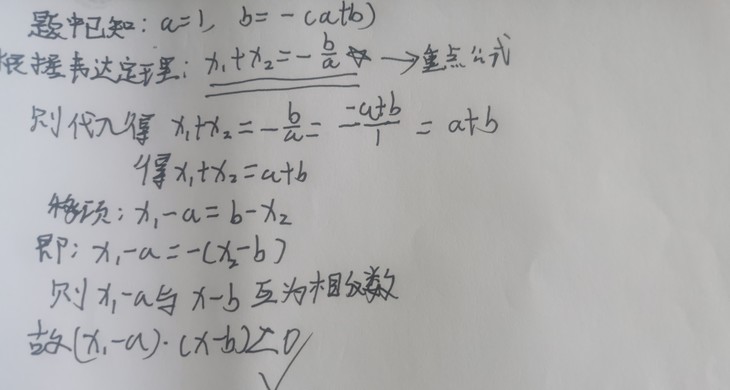 题中已知: a=1, b=-(a+b)
根据韦达定理: x₁+x₂=-b/a → 重点公式
则代入得 x₁+x₂=-b/a= -(-a+b)/1 = a+b
得x₁+x₂=a+b
移项: x₁-a=b-x₂
即: x₁-a=-(x₂-b)
则x₁-a与x-b互为相反数
故(x₁-a)·(x-b)≤0